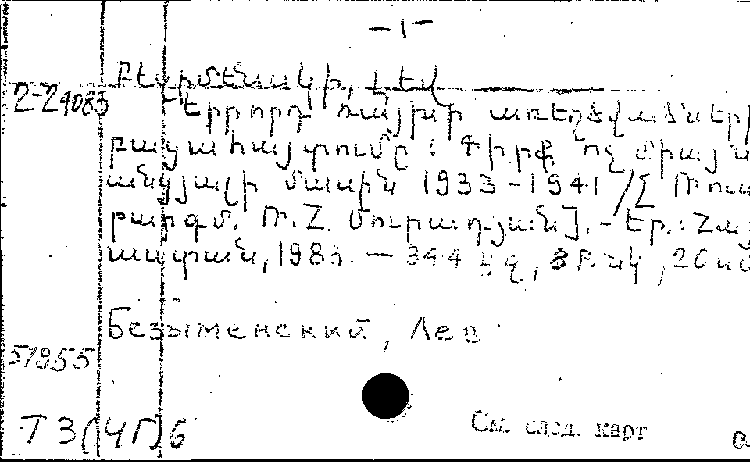 -1-
Բեզիմենսկի, Լև
2-24083 Երրորդ ռայխի առեղծվածների
բացահայտումը: Գիրք ոչ միայն
անցյալի մասին 1933-1941 /[Ռուս
բարգմ. Ռ.Հ. Մուրադյան]. - Եր.: Հայ
աստան, 1983. — 344 էջ, 8 թ. նկ, 20 սմ
Безыменский, Лев
51855
Т3(4Г)6
См. след. карт